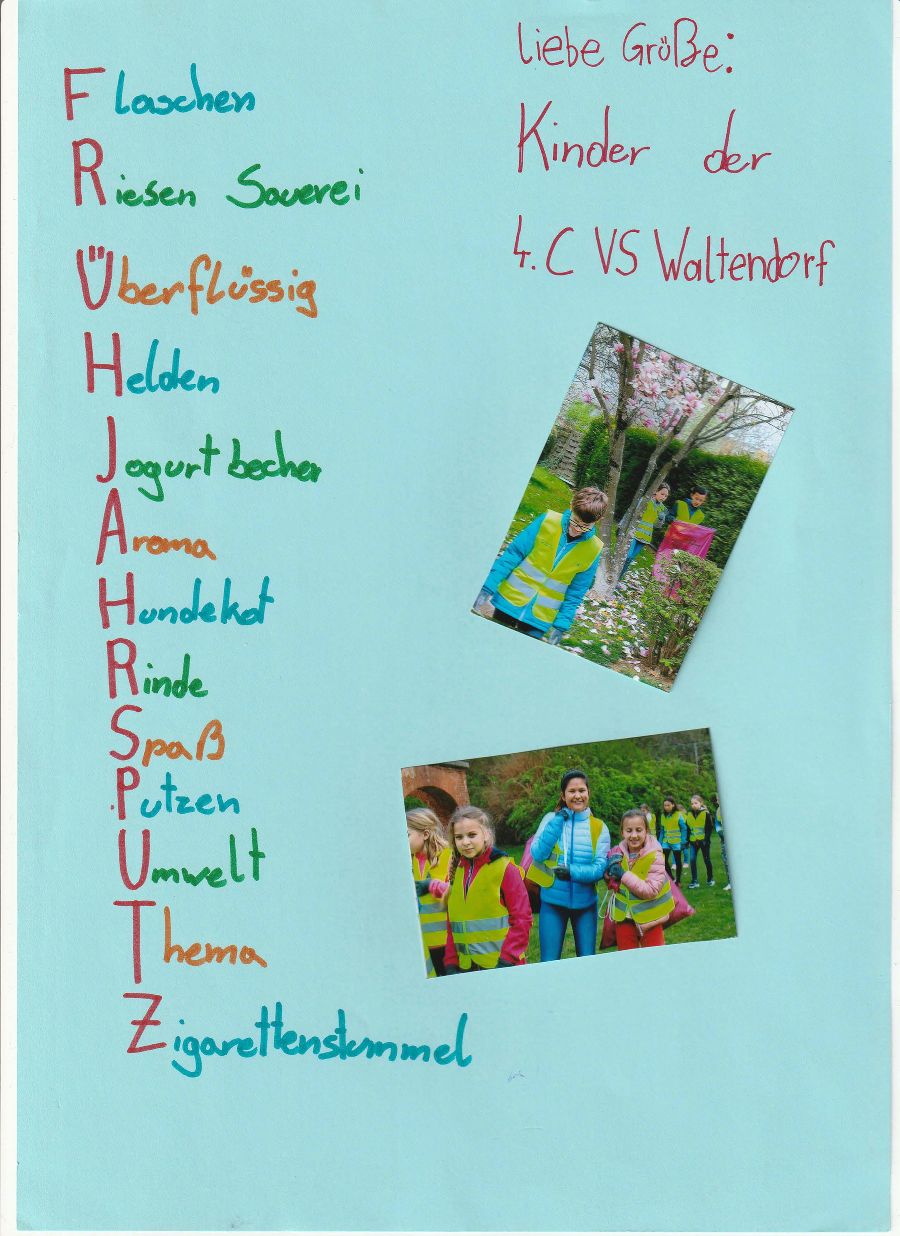 Flaschen
Riesen Sauerei
Überflüssig
Helden
Jogurtbecher
Aroma
Hundekot
Rinde
Spaß
Putzen
Umwelt
Thema
Zigarettenstummel
liebe Grüße:
Kinder der
4.C VS Waltendorf